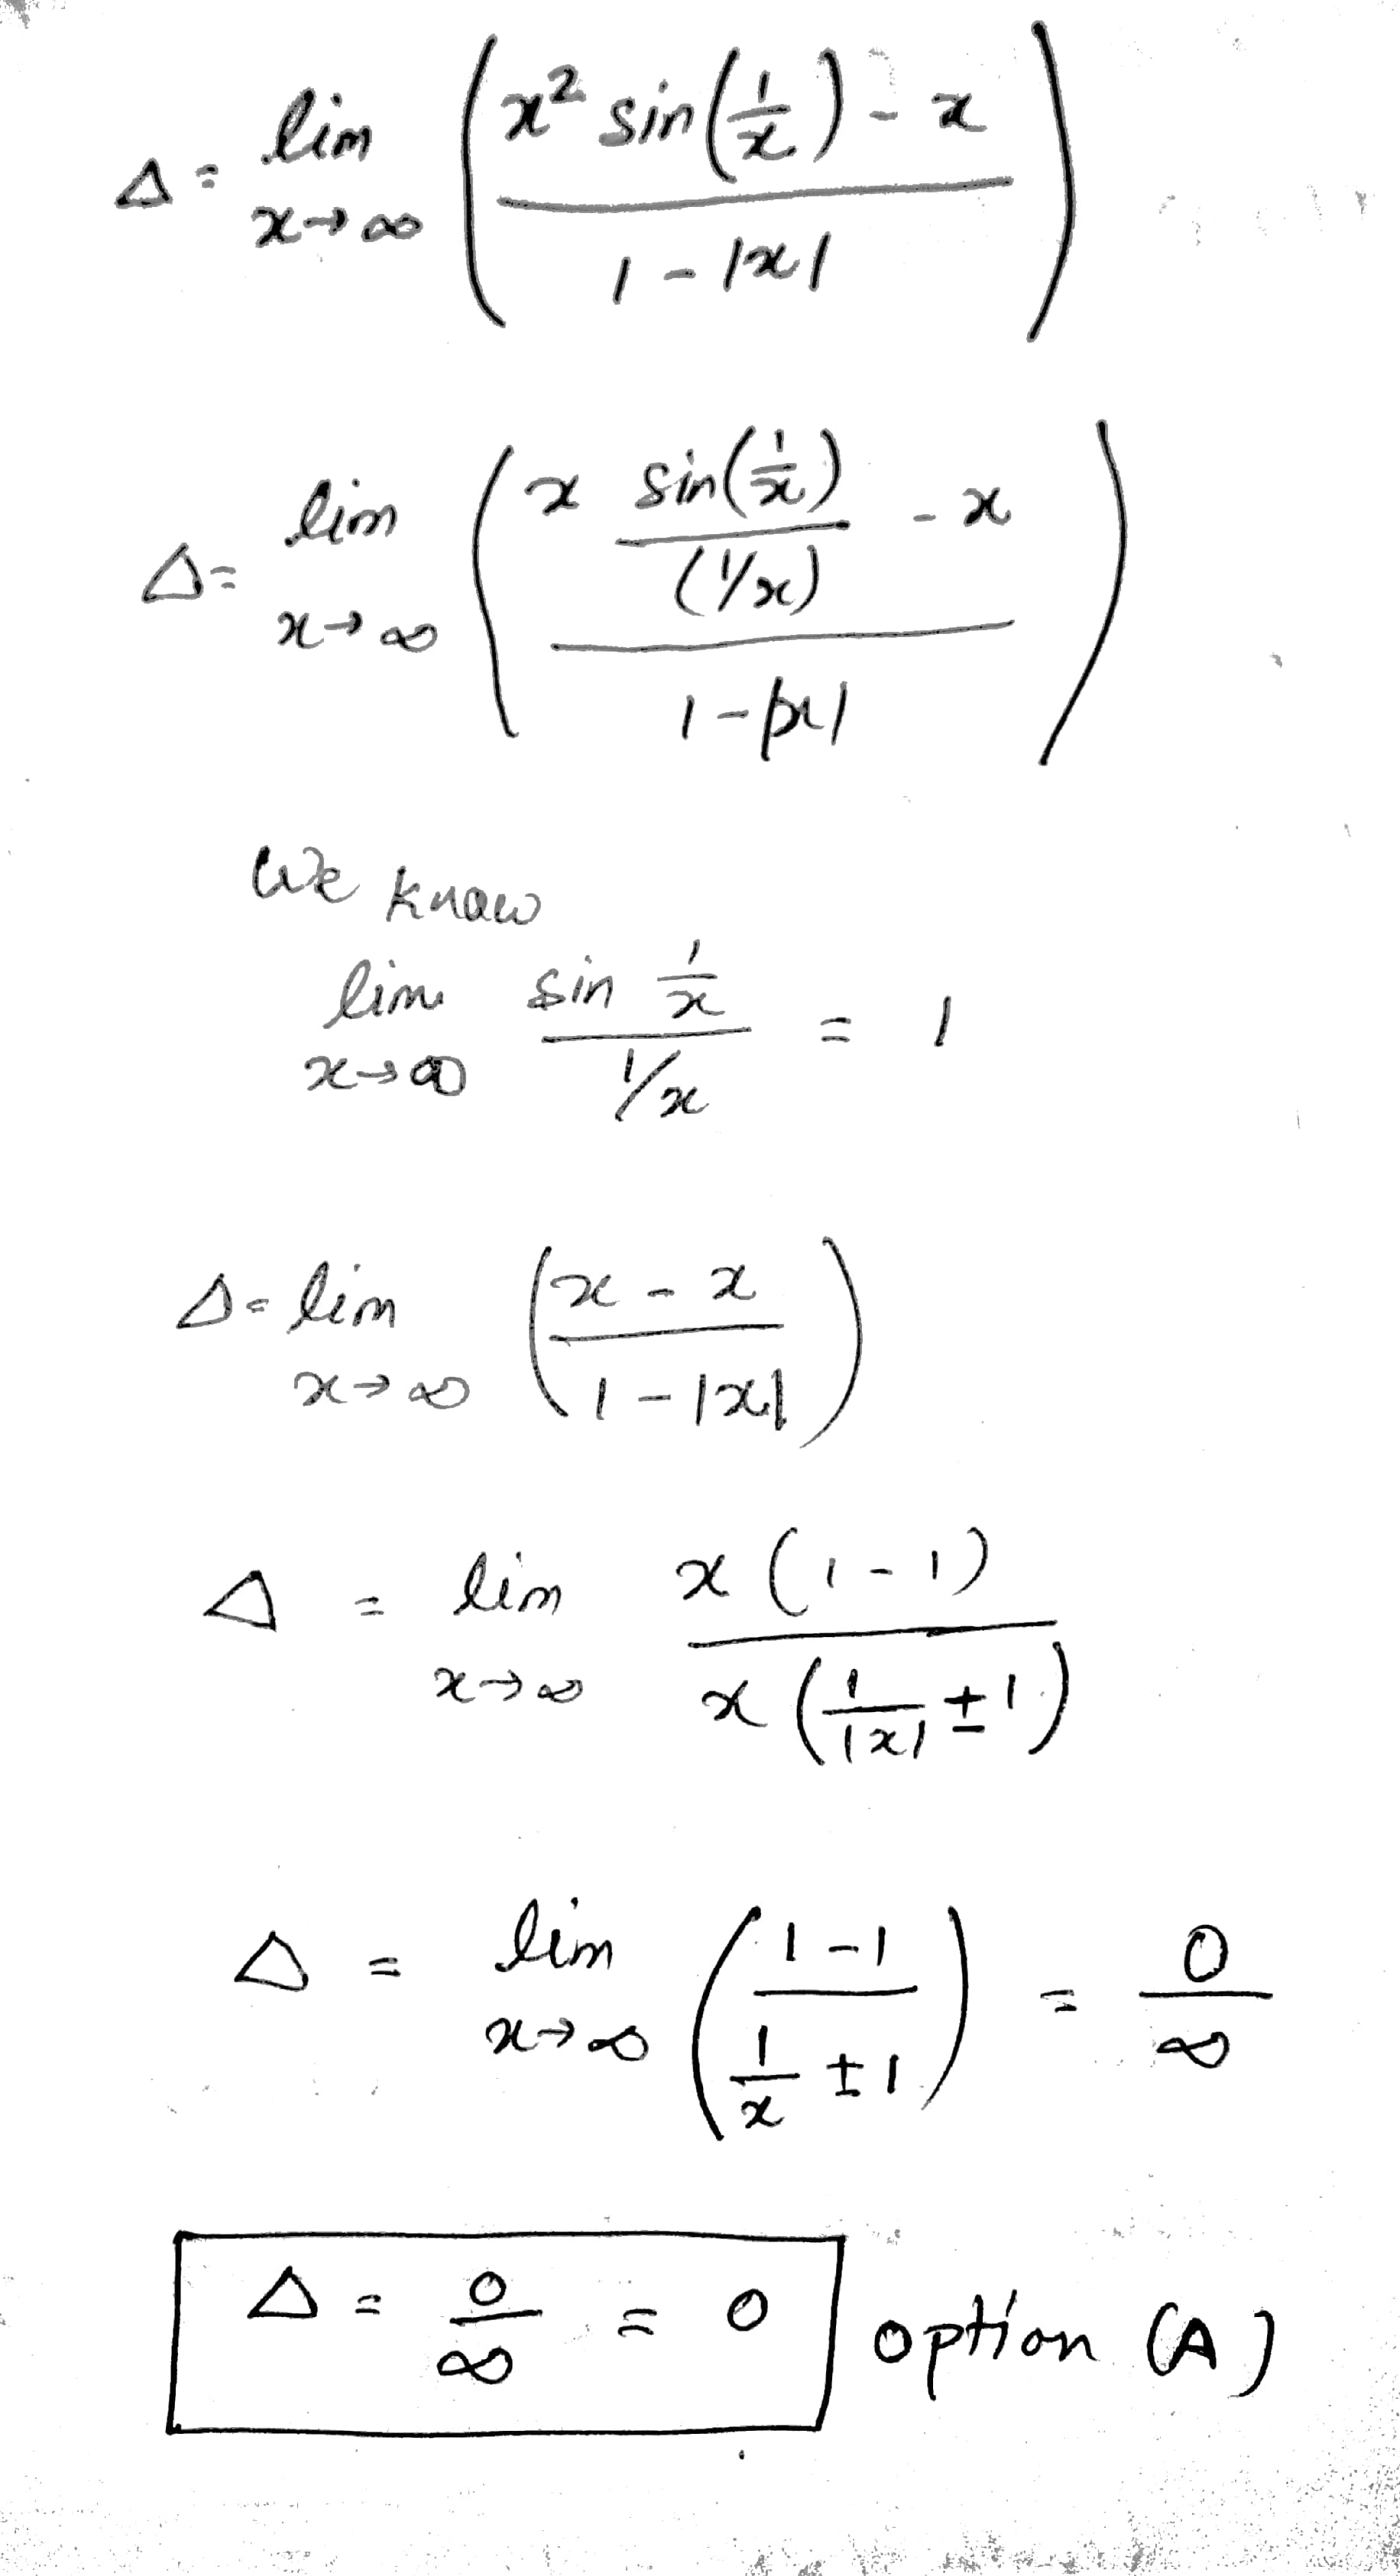 Δ = lim x→∞ ( (x² sin(1/x) - x) / (1 - |x|) )
Δ = lim x→∞ ( (x sin(1/x)/(1/x) - x) / (1 - |x|) )
We know
lim x→∞ sin 1/x / 1/x = 1
Δ = lim x→∞ ( (x - x) / (1 - |x|) )
Δ = lim x→∞ x(1 - 1) / x(1/|x| ± 1)
Δ = lim x→∞ ( (1 - 1) / (1/x ± 1) ) = 0/∞
Δ = 0/∞ = 0 option (A)